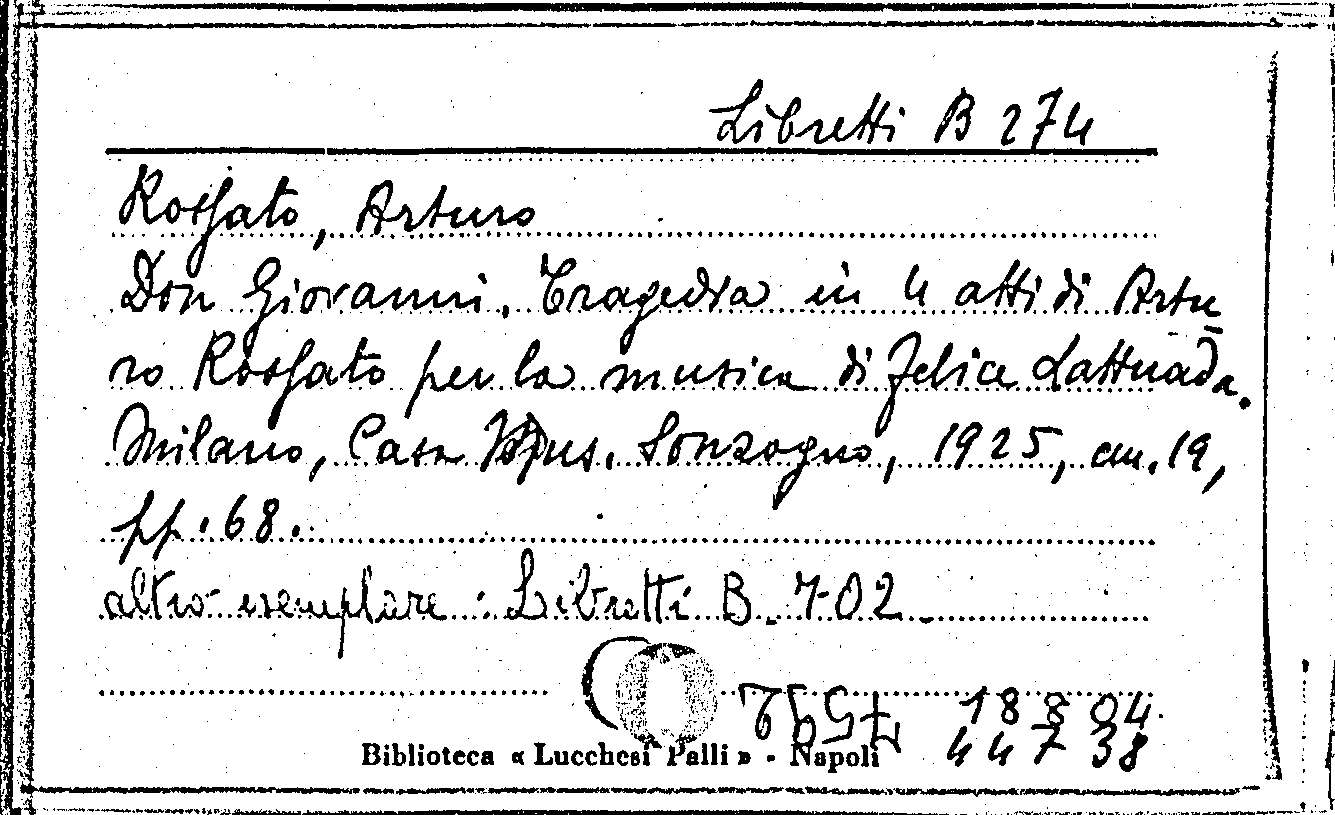 Libretti B 274
Rossato, Arturo
Don Giovanni. Tragedia in 4 atti di Artu
ro Rossato per la musica di Felice Lattuada.
Milano, Casa Mus. Sonzogno, 1925, cm. 19,
pp. 68.
altro esemplare : Libretti B. 702
18 8 04
44 7 38
Biblioteca « Lucchesi Palli » - Napoli